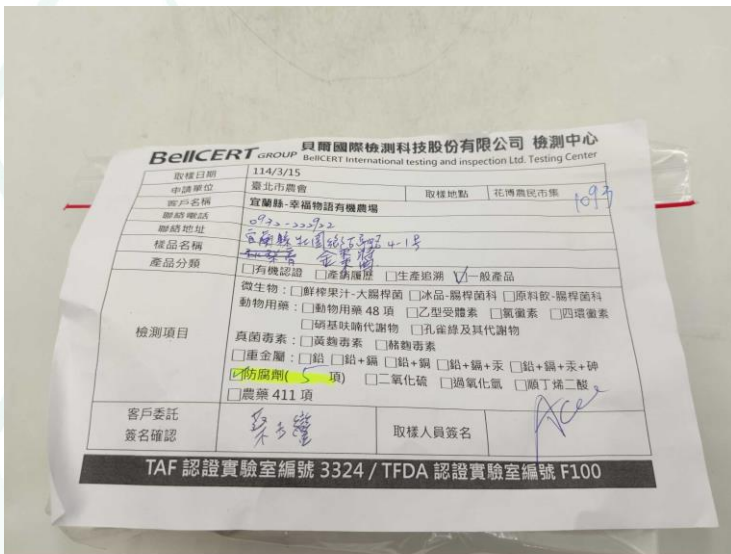 BellCERT GROUP 貝爾國際檢測科技股份有限公司 檢測中心
BellCERT International testing and inspection Ltd. Testing Center
取樣日期 114/3/15
申請單位 臺北市農會 取樣地點 花博農民市集 1093
客戶名稱 宜蘭縣-幸福物語有機農場
聯絡電話 0932-222922
聯絡地址 宜蘭縣 4-1号
樣品名稱 金棗醬
產品分類 □有機認證 □產銷履歷 □生產追溯 ☑一般產品
檢測項目
微生物：□鮮榨果汁-大腸桿菌 □冰品-腸桿菌科 □原料飲-腸桿菌科
動物用藥：□動物用藥 48 項 □乙型受體素 □氯黴素 □四環黴素
□硝基呋喃代謝物 □孔雀綠及其代謝物
真菌毒素：□黃麴毒素 □赭麴毒素
□重金屬：□鉛 □鉛+鎘 □鉛+銅 □鉛+鎘+汞 □鉛+鎘+汞+砷
☑防腐劑( 5 項) □二氧化硫 □過氧化氫 □順丁烯二酸
□農藥 411 項
客戶委託
簽名確認 取樣人員簽名 Ace
TAF 認證實驗室編號 3324 / TFDA 認證實驗室編號 F100